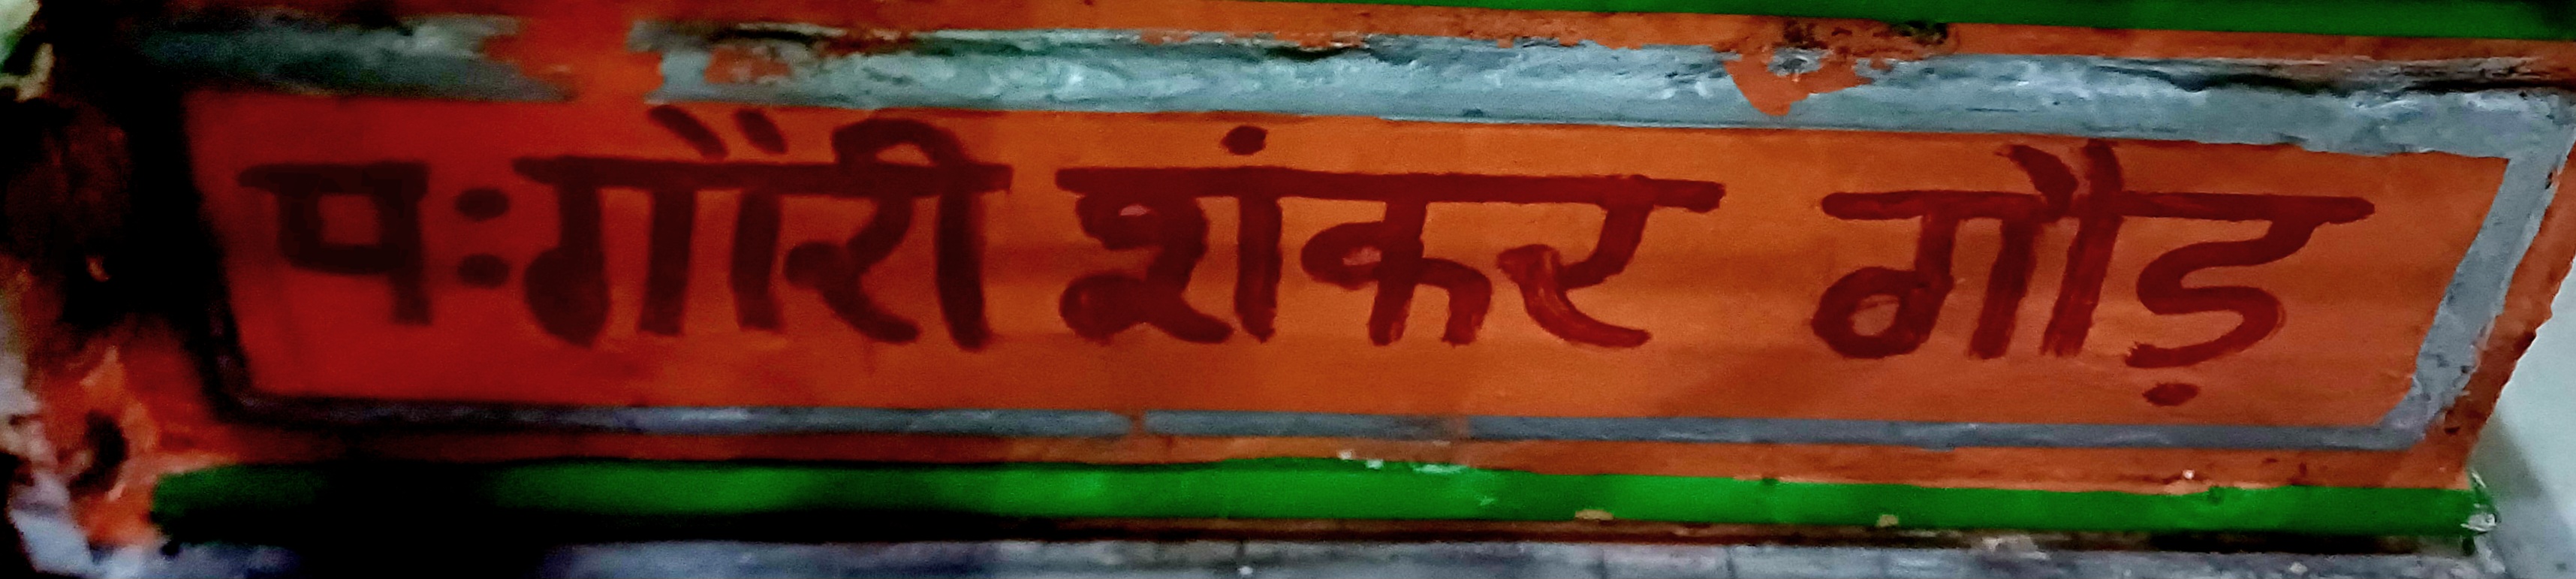 पः गौरी शंकर गौड़